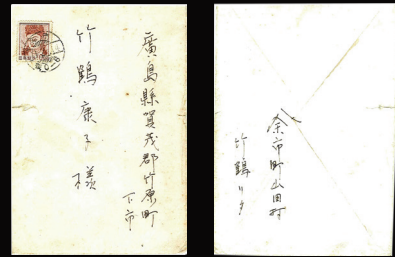 廣島縣賀茂郡竹原町
下市
竹鶴康子様
余市町山田村
竹鶴リタ